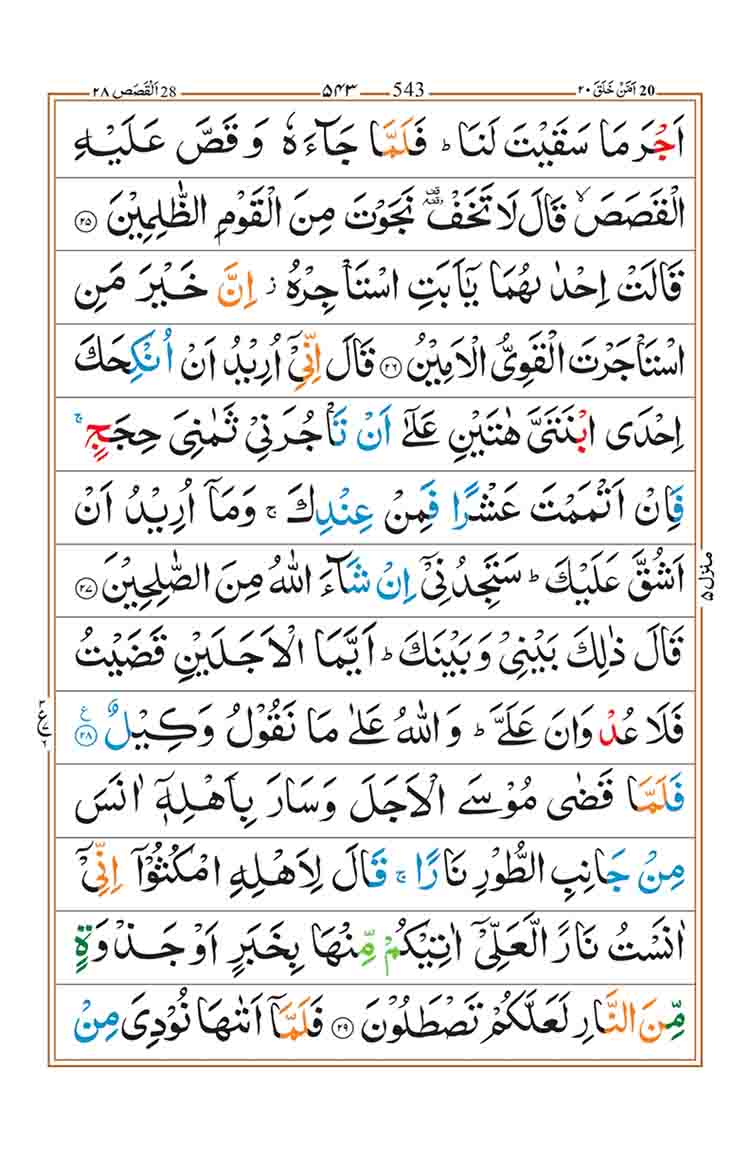 28 اَلْقَصَص ٢٨ ۵۴۳ 543 20 اَمَّنْ خَلَقَ ٢٠
اَجْرَ مَا سَقَيْتَ لَنَا ؕ فَلَمَّا جَآءَهٗ وَ قَصَّ عَلَيْهِ
الْقَصَصَ ۙ قَالَ لَا تَخَفْ ۫ نَجَوْتَ مِنَ الْقَوْمِ الظّٰلِمِيْنَ ۲۵
قَالَتْ اِحْدٰىهُمَا يٰۤاَبَتِ اسْتَاْجِرْهُ ؗ اِنَّ خَيْرَ مَنِ
اسْتَاْجَرْتَ الْقَوِيُّ الْاَمِيْنُ ۲۶ قَالَ اِنِّيْۤ اُرِيْدُ اَنْ اُنْكِحَكَ
اِحْدَى ابْنَتَيَّ هٰتَيْنِ عَلٰۤى اَنْ تَاْجُرَنِيْ ثَمٰنِيَ حِجَجٍ ۚ
فَاِنْ اَتْمَمْتَ عَشْرًا فَمِنْ عِنْدِكَ ۚ وَمَاۤ اُرِيْدُ اَنْ
اَشُقَّ عَلَيْكَ ؕ سَتَجِدُنِيْۤ اِنْ شَآءَ اللّٰهُ مِنَ الصّٰلِحِيْنَ ۲۷
قَالَ ذٰلِكَ بَيْنِيْ وَبَيْنَكَ ؕ اَيَّمَا الْاَجَلَيْنِ قَضَيْتُ
فَلَا عُدْوَانَ عَلَيَّ ؕ وَاللّٰهُ عَلٰى مَا نَقُوْلُ وَكِيْلٌ ۲۸ ع
فَلَمَّا قَضٰى مُوْسَى الْاَجَلَ وَسَارَ بِاَهْلِهٖۤ اٰنَسَ
مِنْ جَانِبِ الطُّوْرِ نَارًا ۚ قَالَ لِاَهْلِهِ امْكُثُوْۤا اِنِّيْۤ
اٰنَسْتُ نَارًا لَّعَلِّيْۤ اٰتِيْكُمْ مِّنْهَا بِخَبَرٍ اَوْ جَذْوَةٍ
مِّنَ النَّارِ لَعَلَّكُمْ تَصْطَلُوْنَ ۲۹ فَلَمَّاۤ اَتٰىهَا نُوْدِيَ مِنْ
منزل ۵